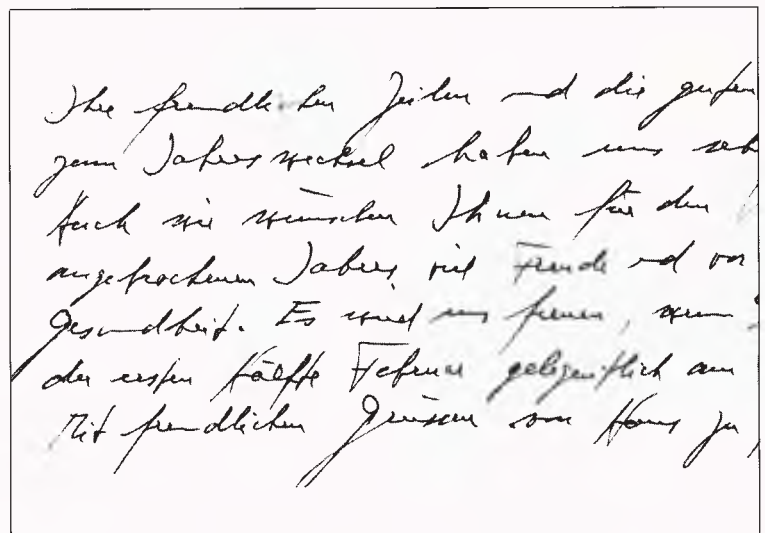 Ihre freundlichen Zeilen und die guten
zum Jahreswechsel haben uns seh
Auch wir wünschen Ihnen für den
angebrochenen Jahres viel Freude und vor
Gesundheit. Es wird uns freuen, wenn
der ersten Hälfte Februar gelegentlich am
Mit freundlichen Grüssen von Haus zu